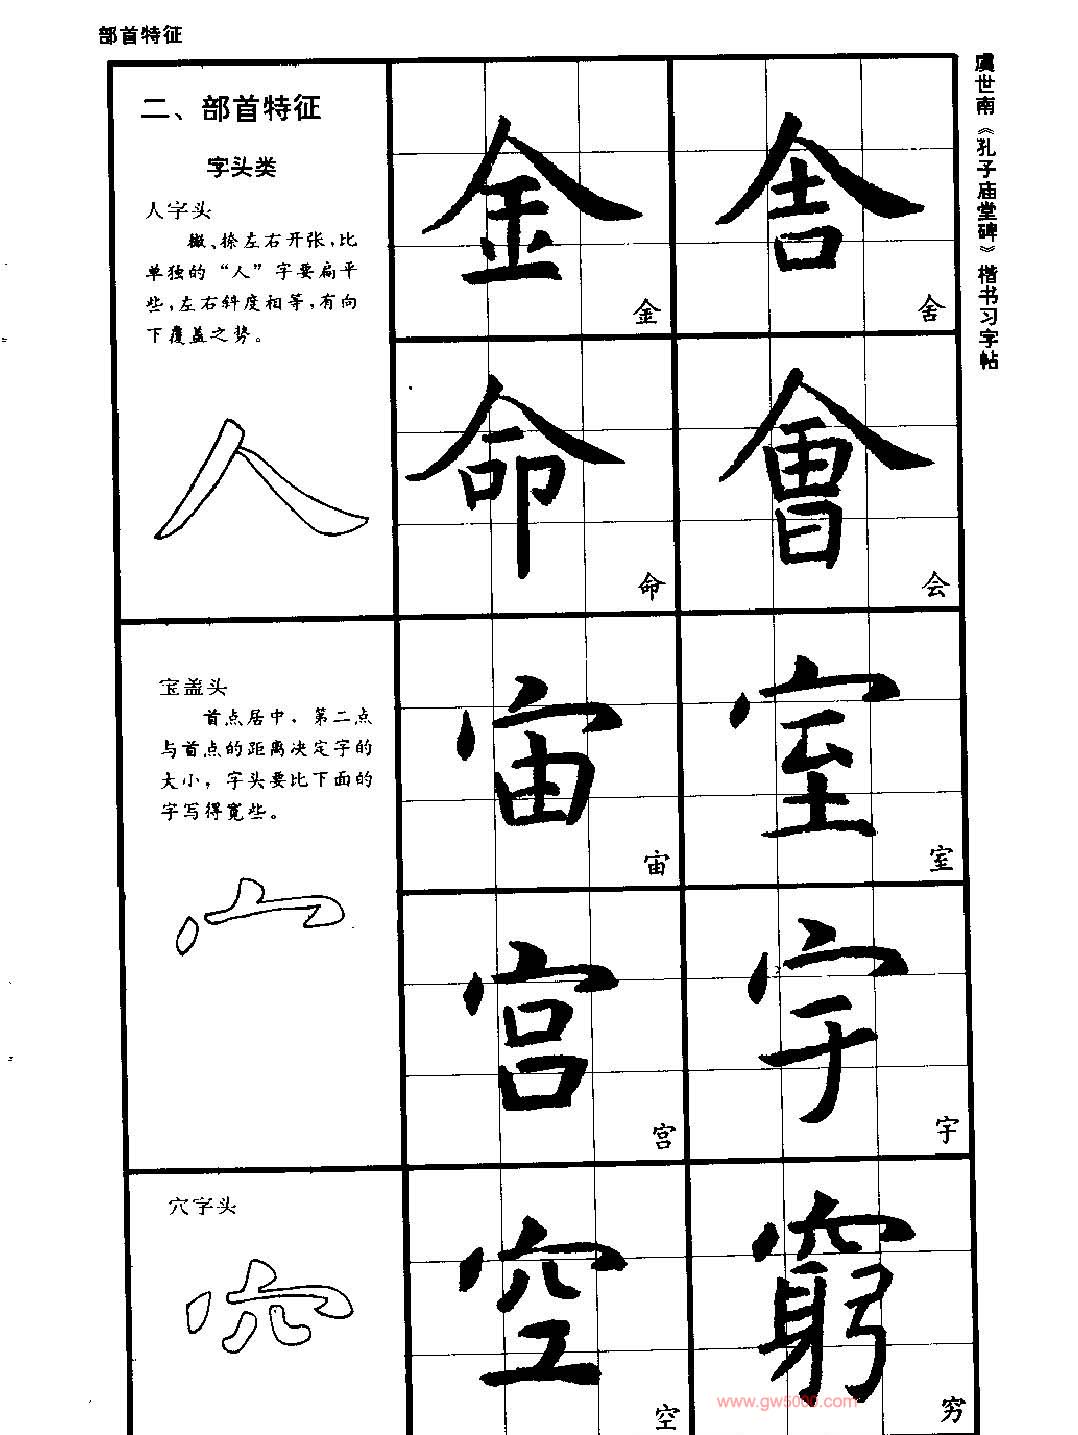 部首特征
虞世南《孔子庙堂碑》楷书习字帖
二、部首特征
字头类
人字头
撇、捺左右开张,比
单独的“人”字要扁平
些,左右斜度相等,有向
下覆盖之势。
人
金 金
舍 舍
命 命
會 会
宝盖头
首点居中,第二点
与首点的距离决定字的
大小,字头要比下面的
字写得宽些。
宀
宙 宙
室 室
宫 宫
宇 宇
穴字头
穴
空 空
窮 穷
www.gw5000.com